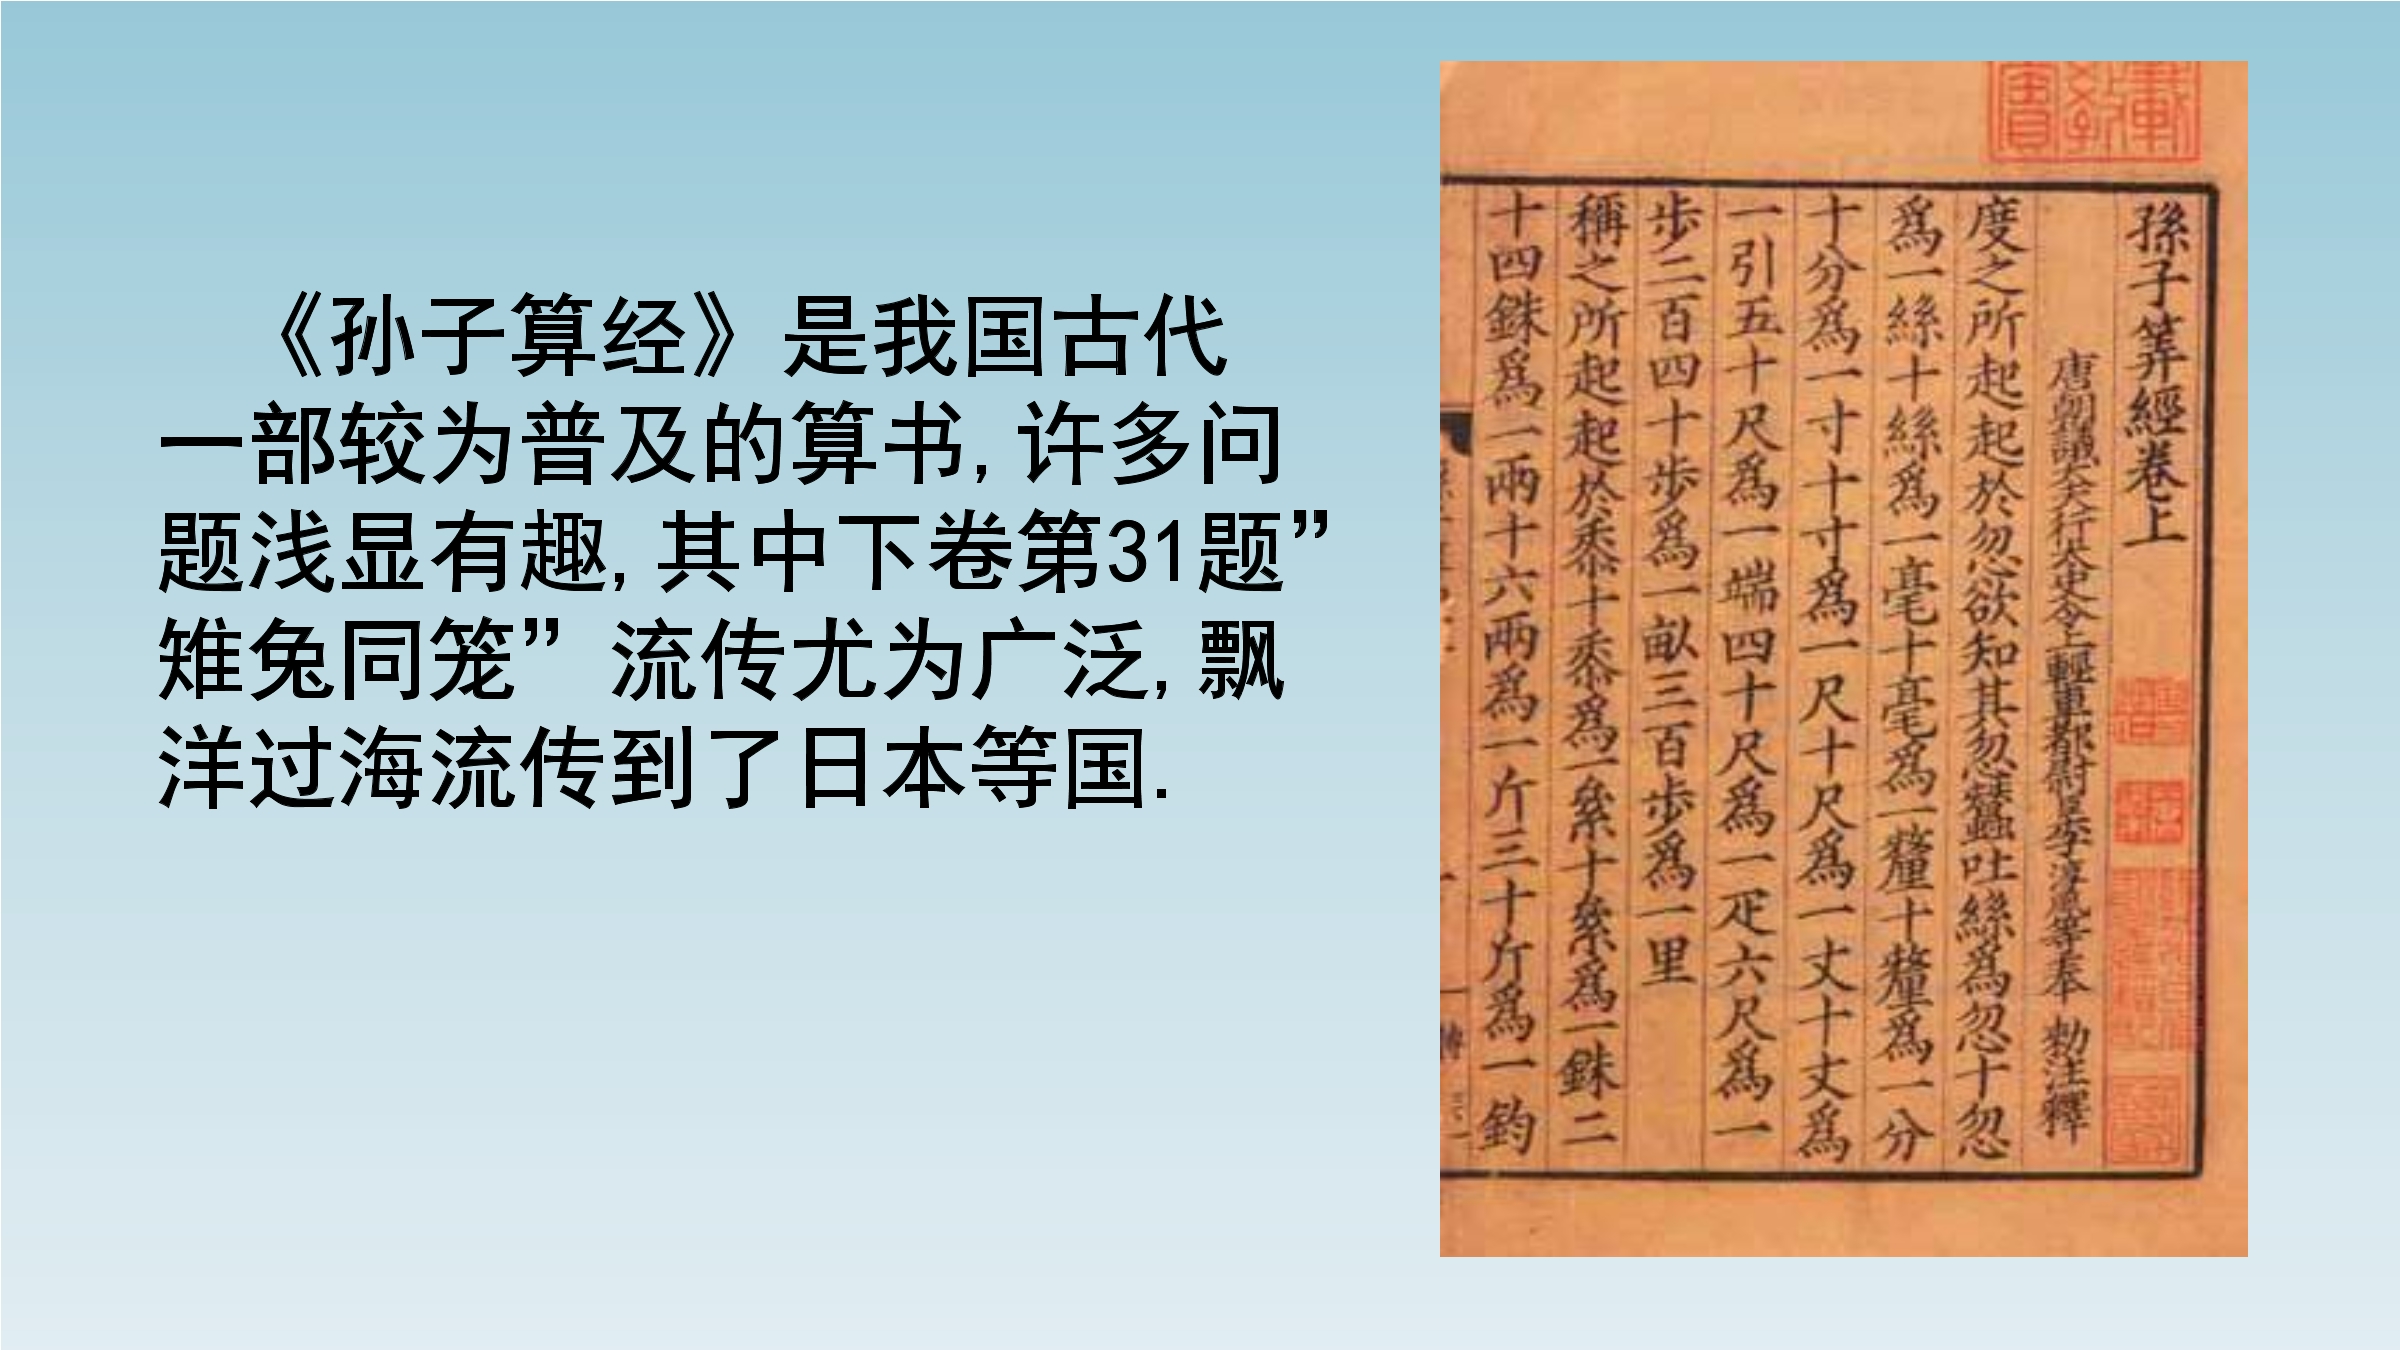 《孙子算经》是我国古代
一部较为普及的算书,许多问
题浅显有趣,其中下卷第31题”
雉兔同笼”流传尤为广泛,飘
洋过海流传到了日本等国.
孫子筭經卷上
唐朝議大夫行太史令上輕車都尉臣李淳風等奉 勑注釋
度之所起起於忽欲知其忽蠶吐絲爲忽十忽
爲一絲十絲爲一毫十毫爲一釐十釐爲一分
十分爲一寸十寸爲一尺十尺爲一丈十丈爲
一引五十尺爲一端四十尺爲一疋六尺爲一
步二百四十步爲一畝三百步爲一里
稱之所起起於黍十黍爲一絫十絫爲一銖二
十四銖爲一兩十六兩爲一斤三十斤爲一鈞